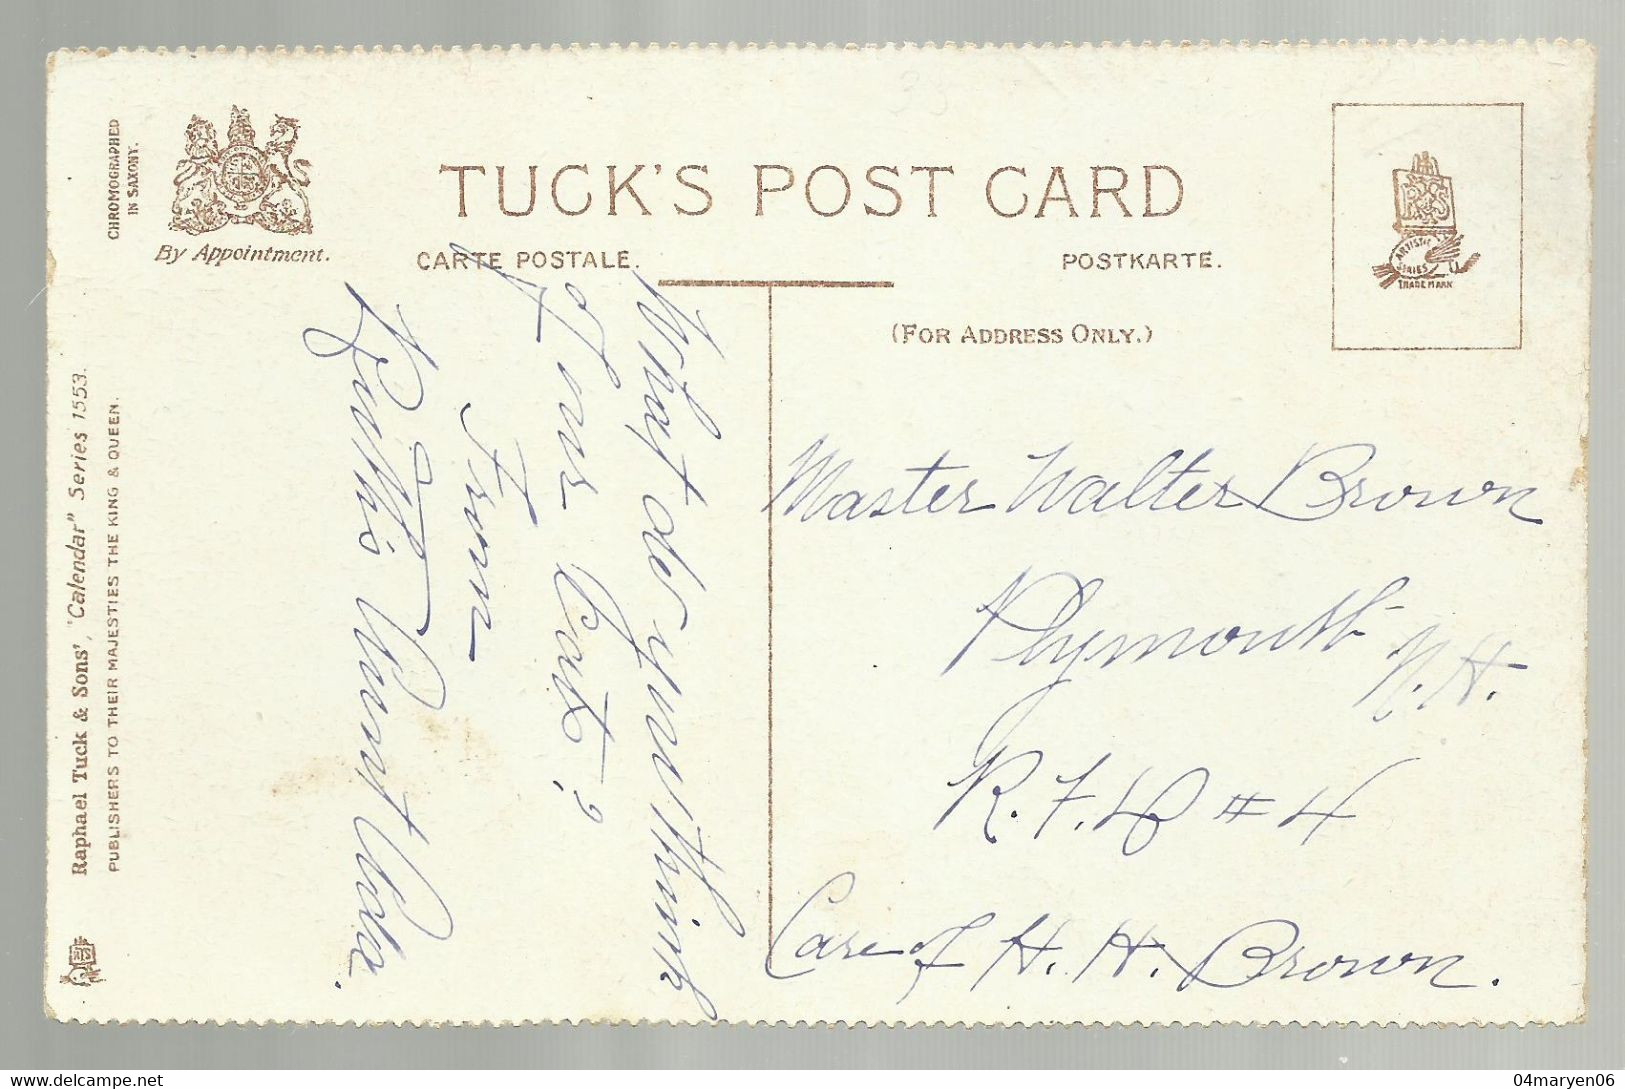 CHROMOGRAPHED
IN SAXONY.
By Appointment.
TUCK'S POST CARD
CARTE POSTALE.
POSTKARTE.
(FOR ADDRESS ONLY.)
R T S
ARTISTIC
SERIES
TRADE MARK
Raphael Tuck & Sons', "Calendar" Series 1553.
PUBLISHERS TO THEIR MAJESTIES THE KING & QUEEN.
What do you think
of our Cat?
From
Ruth's Aunt Ada.
Master Walter Brown
Plymouth
N.H.
R.F.D #4
Care of H. H. Brown.
04maryen06